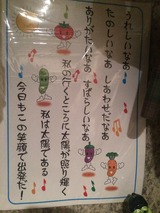 うれしいなあ
たのしいなあ しあわせだなあ
ありがたいなあ すばらしいなあ
私の行くところに太陽が照り輝く
私は太陽である
今日もこの笑顔で出発だ!